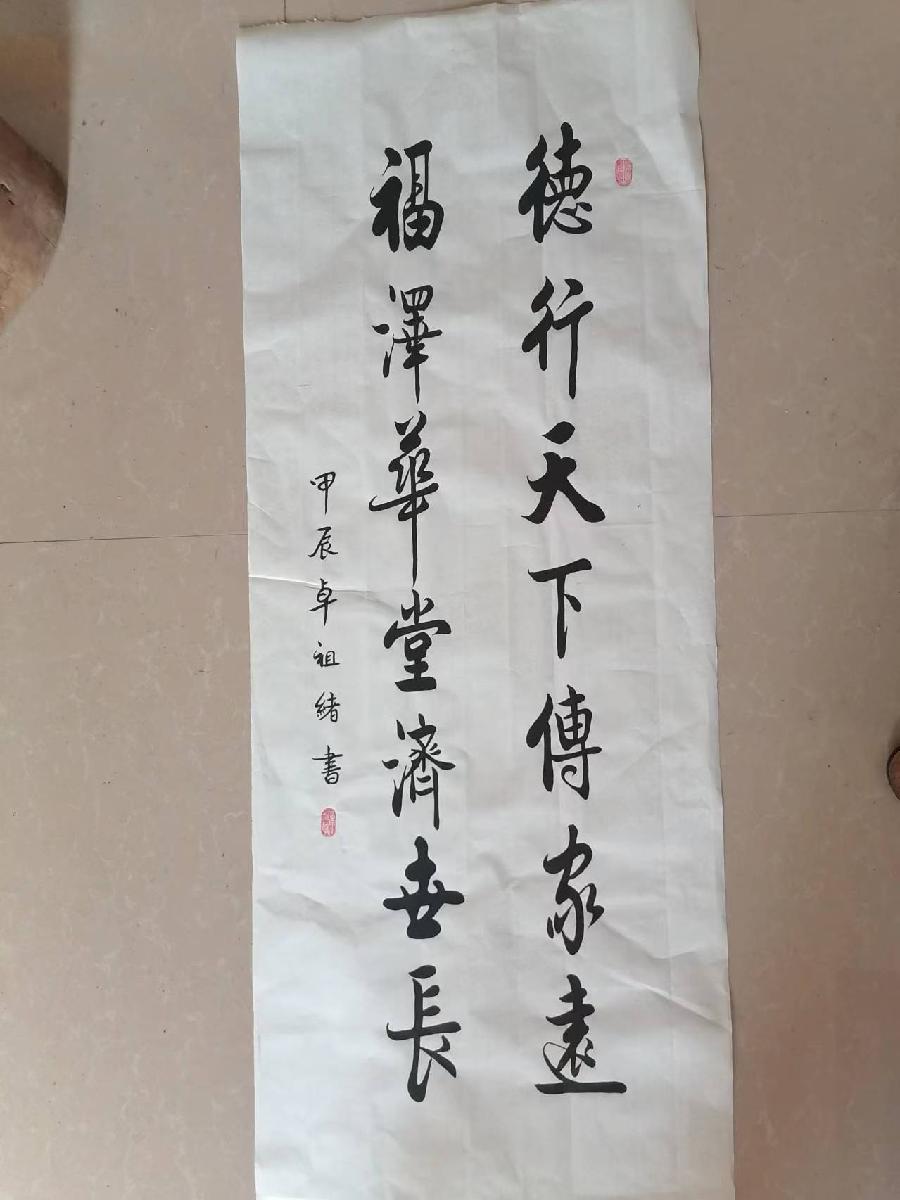 德行天下傳家遠
福澤華堂濟世長
甲辰卓祖緒書